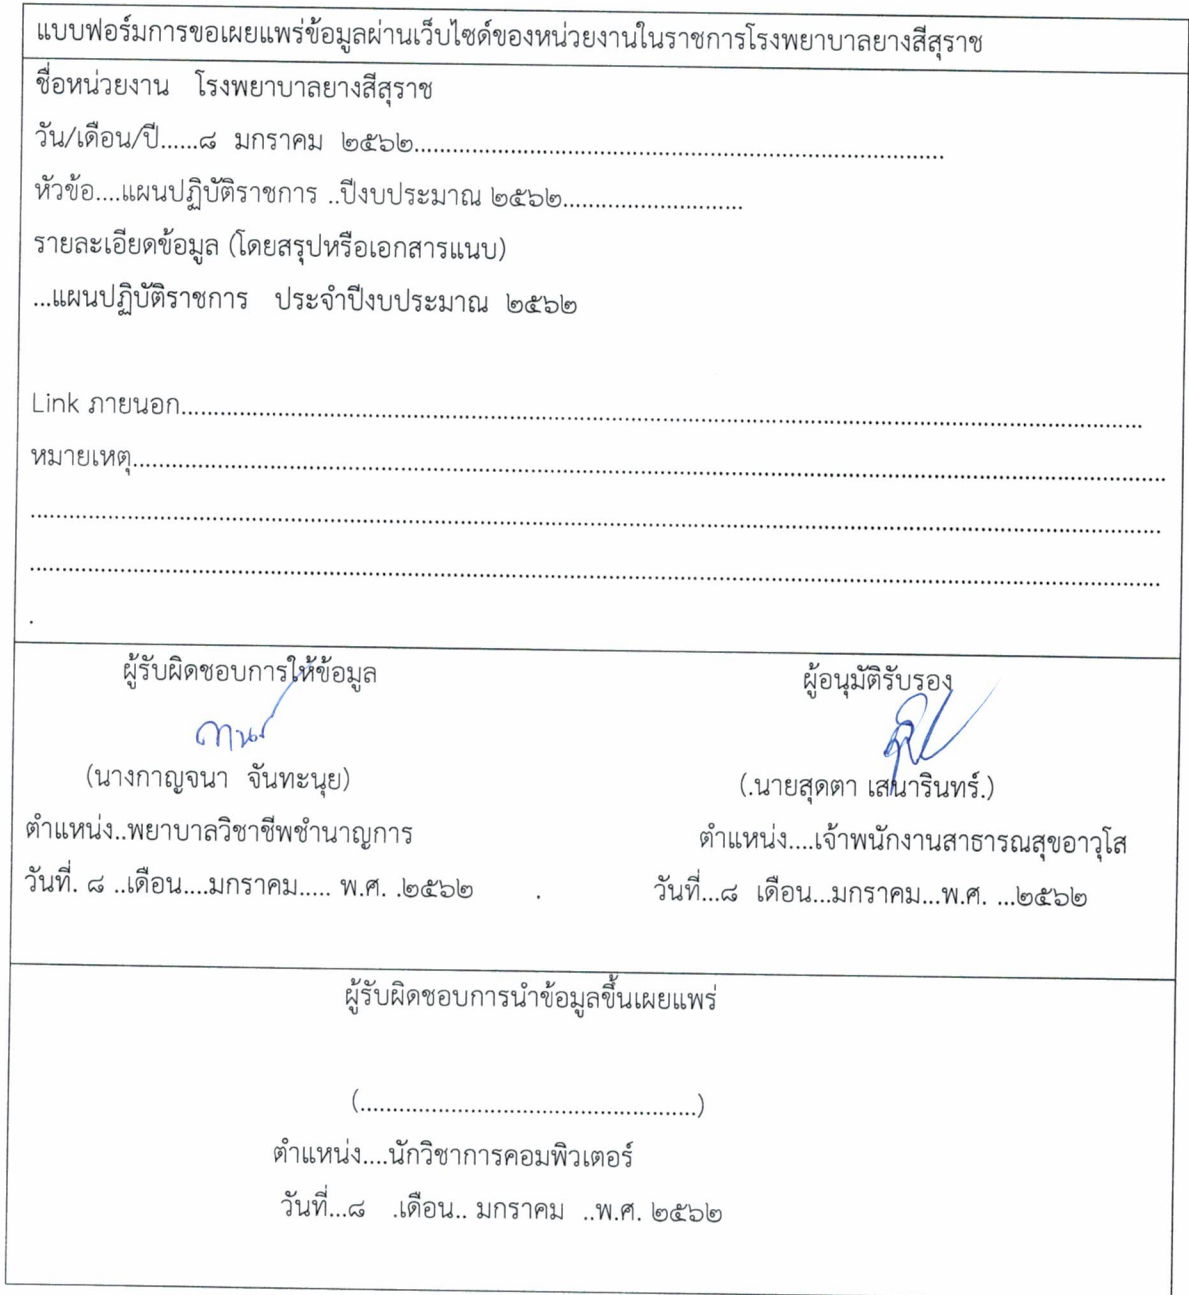 แบบฟอร์มการขอเผยแพร่ข้อมูลผ่านเว็บไซด์ของหน่วยงานในราชการโรงพยาบาลยางสีสุราช
ชื่อหน่วยงาน โรงพยาบาลยางสีสุราช
วัน/เดือน/ปี......๘ มกราคม ๒๕๖๒..................................................................................
หัวข้อ....แผนปฏิบัติราชการ ..ปีงบประมาณ ๒๕๖๒............................
รายละเอียดข้อมูล (โดยสรุปหรือเอกสารแนบ)
...แผนปฏิบัติราชการ ประจำปีงบประมาณ ๒๕๖๒
Link ภายนอก....................................................................................................................................................
หมายเหตุ................................................................................................................................................................
................................................................................................................................................................................
................................................................................................................................................................................
.
ผู้รับผิดชอบการให้ข้อมูล
(นางกาญจนา จันทะนุย)
ตำแหน่ง..พยาบาลวิชาชีพชำนาญการ
วันที่. ๘ ..เดือน....มกราคม..... พ.ศ. .๒๕๖๒ .
ผู้อนุมัติรับรอง
(.นายสุดตา เสนารินทร์.)
ตำแหน่ง....เจ้าพนักงานสาธารณสุขอาวุโส
วันที่...๘ เดือน...มกราคม...พ.ศ. ...๒๕๖๒
ผู้รับผิดชอบการนำข้อมูลขึ้นเผยแพร่
(....................................................)
ตำแหน่ง....นักวิชาการคอมพิวเตอร์
วันที่...๘ .เดือน.. มกราคม ..พ.ศ. ๒๕๖๒